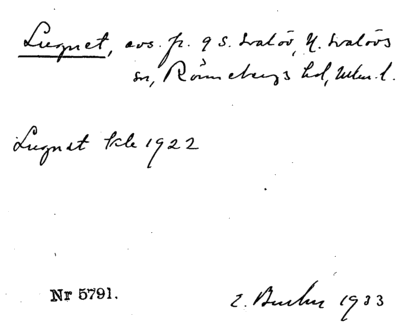 Lugnet, avs. fr. 9 S. Svalöv, N. Svalövs
sn, Rönnebergs hd, Mlm. l.
Lugnet kle 1922
Nr 5791.
1933